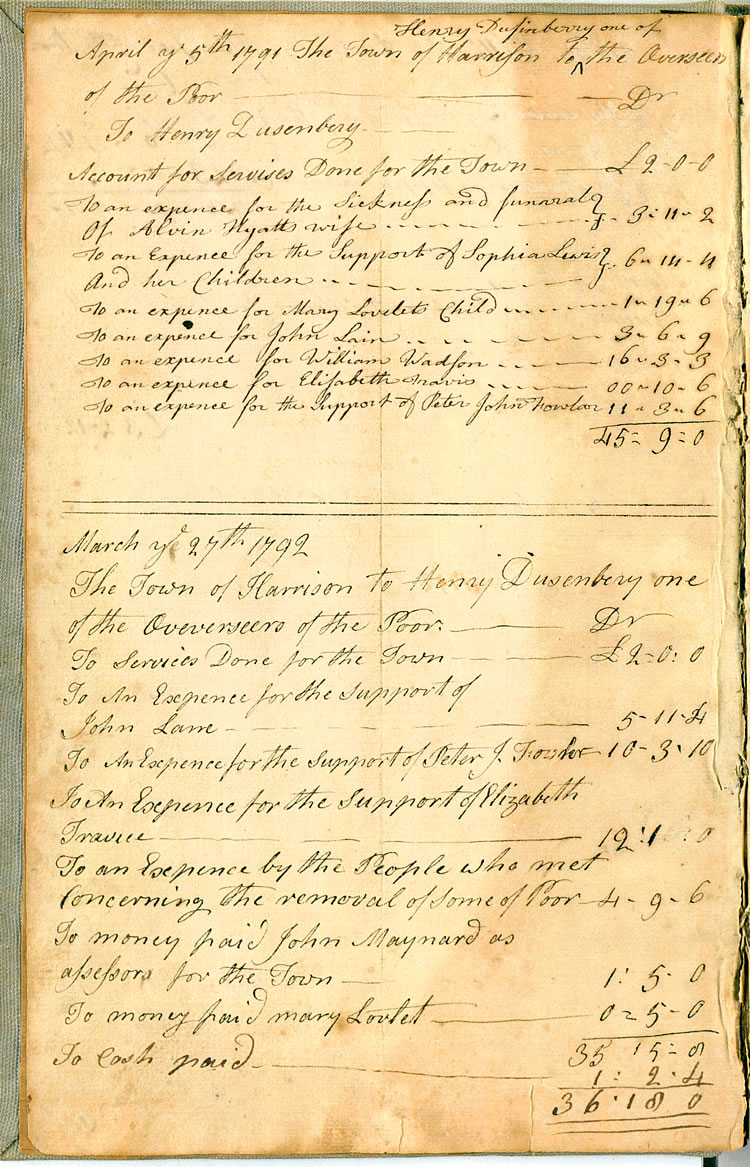 Henry Dusinberry one of
April ye 5th 1791 The Town of Harrison To ^ the Overseers
of the Poor Dr
To Henry Dusenbery
Account for Servises Done for the Town £ 2-0-0
To an expence for the Sickness and funaral
Of Alvin Hyatts wife 3-11-2
To an Expence for the Support of Sophia Lewis
And her Children 6-14-4
To an expence for Mary Lovelets Child 1-19-6
To an expence for John Lain 3-6-9
To an expence for William Wadson 16-3-3
To an expence for Elisabeth Travis 00-10-6
To an expence for the Support of Peter John Fowlor 11-3-6
45=9=0
March ye 27th 1792
The Town of Harrison to Henry Dusenbery one
of the Oveverseers of the Poor. Dr
To Services Done for the Town £ 2=0:0
To An Expence for the Support of
John Lane 5-11-4
To An Expence for the Support of Peter J. Fowlor 10-3-10
To An Expence for the Support of Elizabeth
Travice 12:1:0
To an Expence by the People who met
Concerning the removal of some of Poor 4-9-6
To money paid John Maynard as
assessors for the Town 1:5-0
To money paid mary Lovlet 0=5-0
35 15=8
To Cash paid 1:2-4
36:18 0